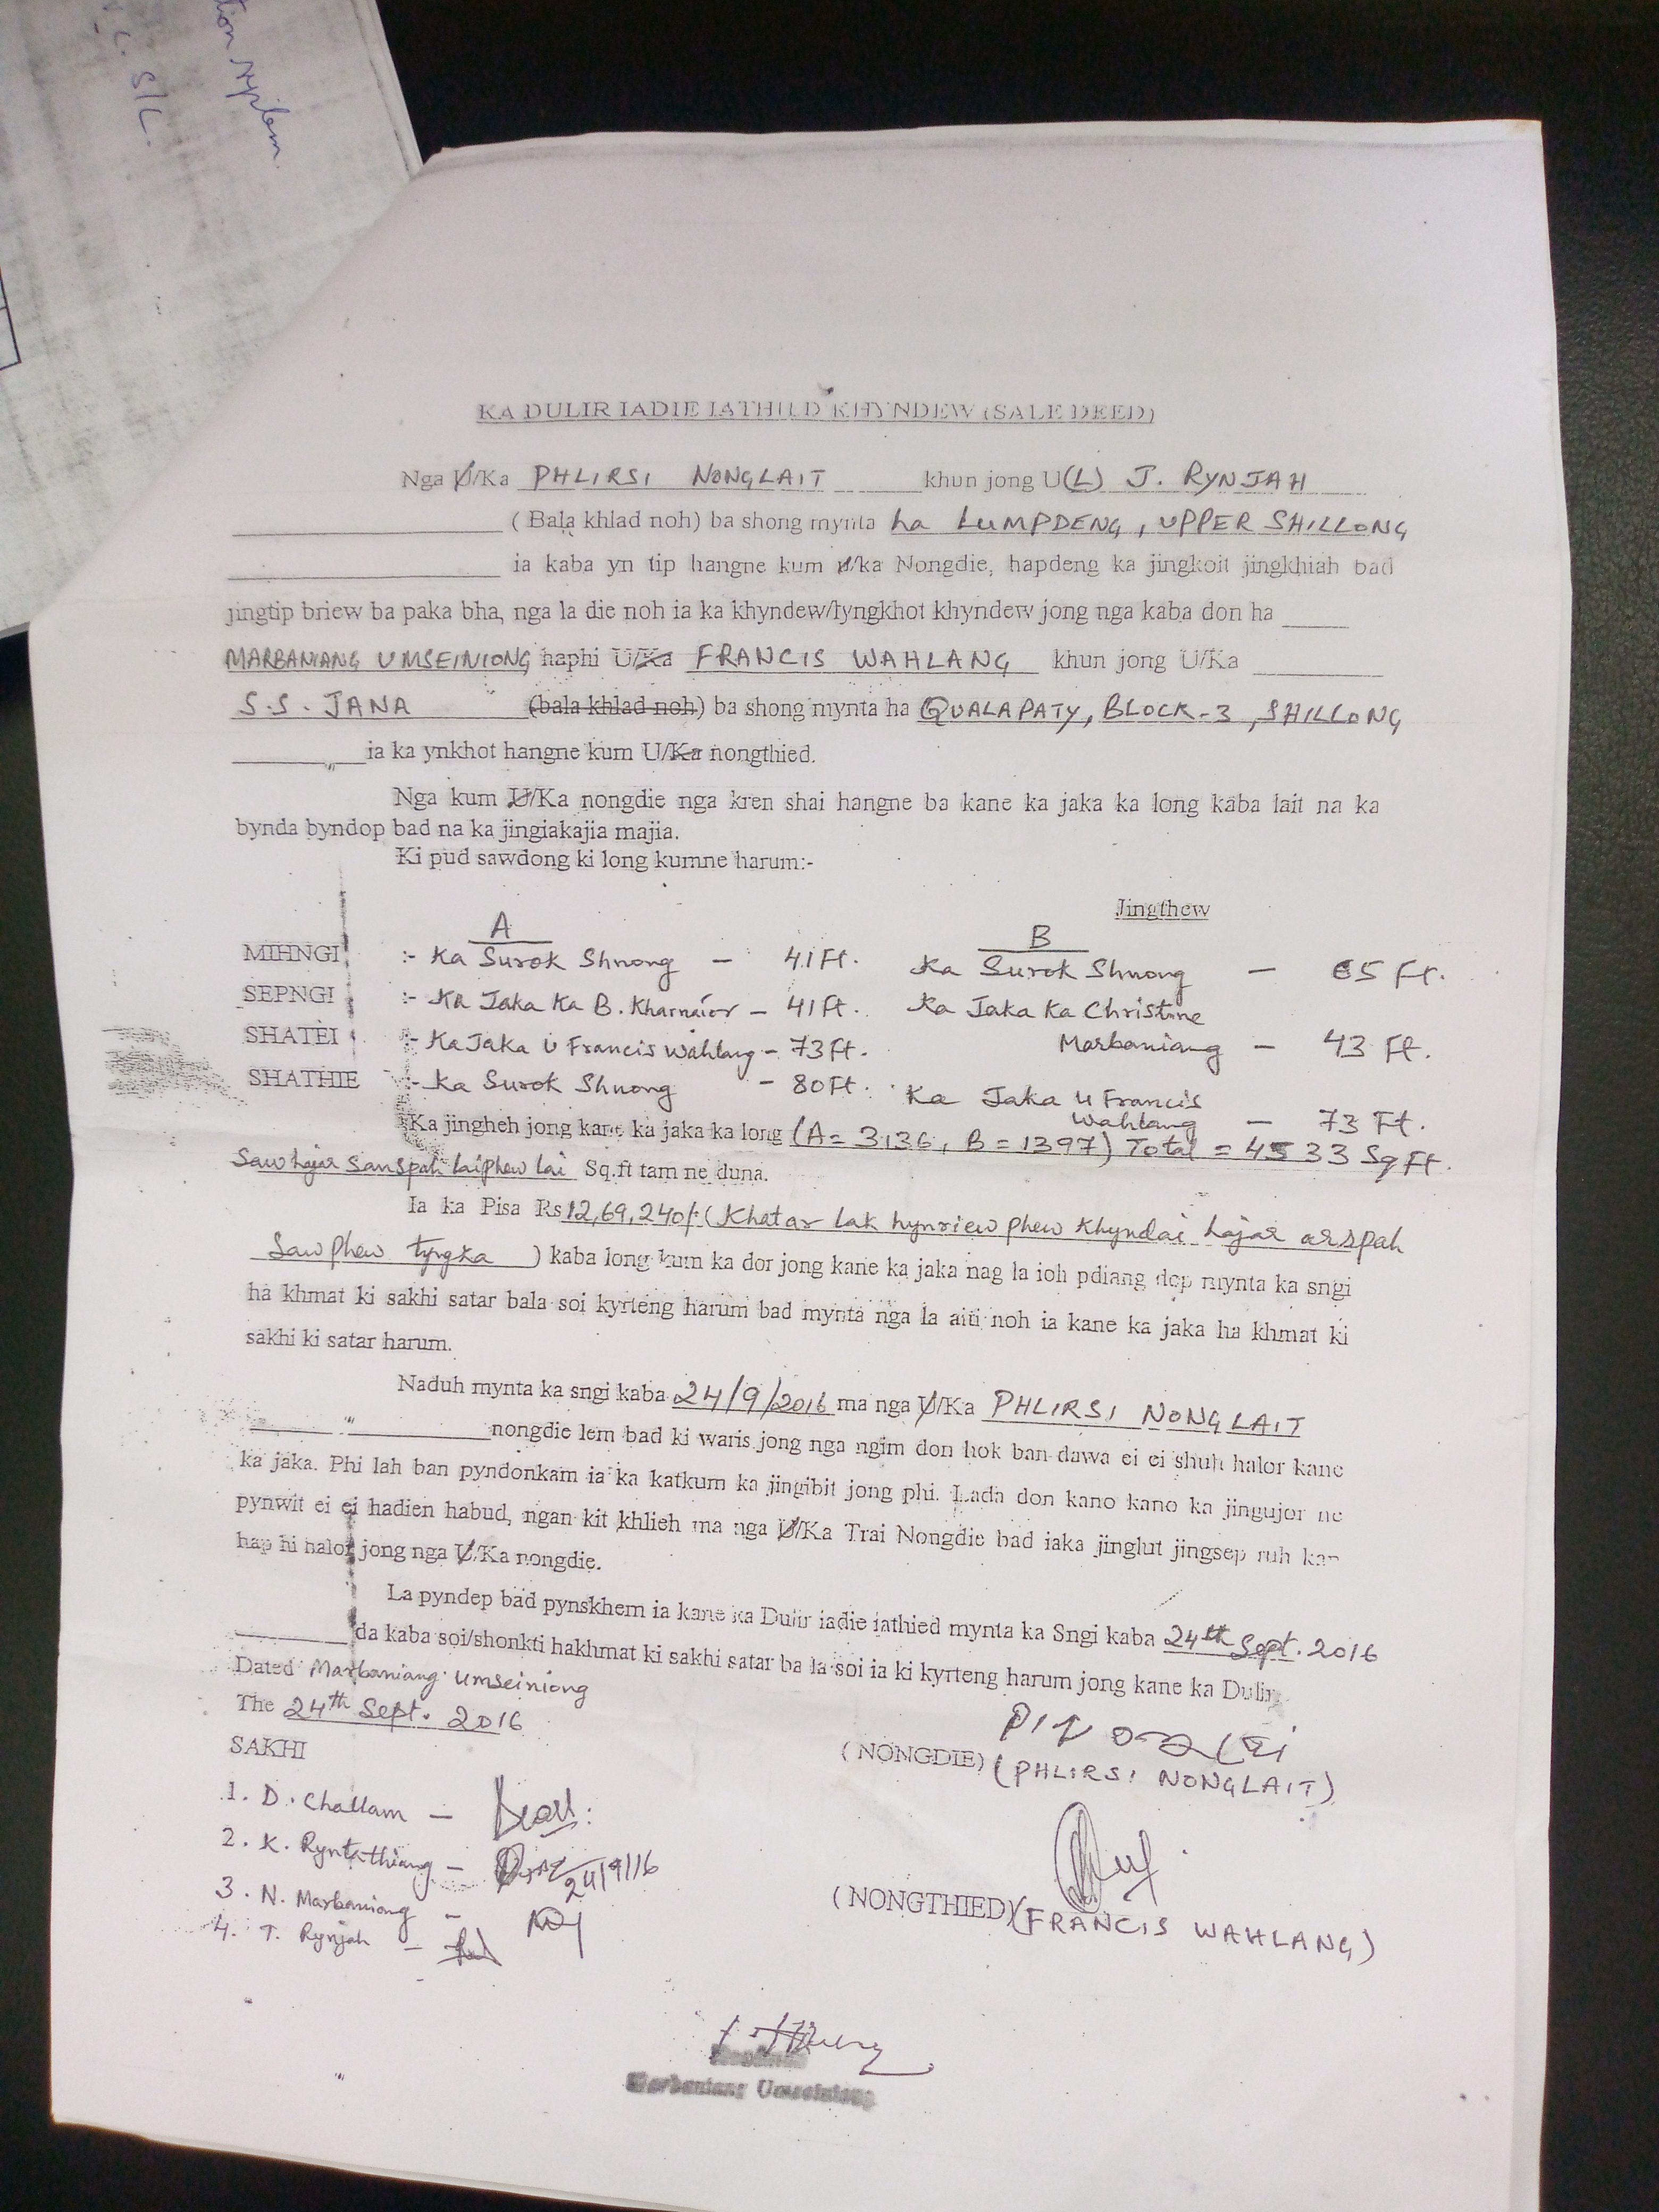 tion system
S/C.
KA DULIR IADIE IATHILD KHYNDEW (SALE DEED)
Nga U/Ka PHLIRSI NONGLAIT khun jong U(L) J. RYNJAH
( Bala khlad noh) ba shong mynta ha LUMPDENG, UPPER SHILLONG
ia kaba yn tip hangne kum u/ka Nongdie, hapdeng ka jingkoit jingkhiah bad
jingtip briew ba paka bha, nga la die noh ia ka khyndew/lyngkhot khyndew jong nga kaba don ha
MARBANIANG UMSEINIONG haphi U/Ka FRANCIS WAHLANG khun jong U/Ka
S.S. JANA (bala khlad noh) ba shong mynta ha QUALAPATY, BLOCK-3, SHILLONG
ia ka ynkhot hangne kum U/Ka nongthied.
Nga kum U/Ka nongdie nga kren shai hangne ba kane ka jaka ka long kaba lait na ka
bynda byndop bad na ka jingiakajia majia.
Ki pud sawdong ki long kumne harum:-
Jingthew
A B
MIHNGI :- Ka Surok Shnong - 41 Ft. Ka Surok Shnong - 65 Ft.
SEPNGI :- Ka Jaka Ka B. Kharnaior - 41 Ft. Ka Jaka Ka Christine
SHATEI :- Ka Jaka U Francis Wahlang - 73 Ft. Marbaniang - 43 Ft.
SHATHIE :- Ka Surok Shnong - 80 Ft. Ka Jaka U Francis
Wahlang - 73 Ft.
Ka jingheh jong kane ka jaka ka long (A= 3136, B = 1397) Total = 4533 Sq Ft.
Saw hajar sanspah laiphew lai Sq.ft tam ne duna.
Ia ka Pisa Rs 12,69,240/- (Khatar lak hynriew phew Khyndai hajar arspah
Saw Phew tyngka ) kaba long kum ka dor jong kane ka jaka nag la ioh pdiang dep mynta ka sngi
ha khmat ki sakhi satar bala soi kyrteng harum bad mynta nga la aiti noh ia kane ka jaka ha khmat ki
sakhi ki satar harum.
Naduh mynta ka sngi kaba 24/9/2016 ma nga U/Ka PHLIRSI NONGLAIT
nongdie lem bad ki waris jong nga ngim don hok ban dawa ei ei shuh halor kane
ka jaka. Phi lah ban pyndonkam ia ka katkum ka jingibit jong phi. Lada don kano kano ka jingujor ne
pynwit ei ei hadien habud, ngan kit khlieh ma nga U/Ka Trai Nongdie bad iaka jinglut jingsep ruh kan
hap hi halor jong nga U/Ka nongdie.
La pyndep bad pynskhem ia kane ka Dulir iadie iathied mynta ka Sngi kaba 24th Sept. 2016
da kaba soi/shonkti hakhmat ki sakhi satar ba la soi ia ki kyrteng harum jong kane ka Dulir
Dated Marbaniang Umseiniong
The 24th Sept. 2016
SAKHI
(NONGDIE) (PHLIRSI NONGLAIT)
1. D. Challam -
2. K. Ryntathiang - 24/9/16
3. N. Marbaniang -
4. T. Rynjah -
(NONGTHIED) (FRANCIS WAHLANG)
Marbaniang Umseiniong